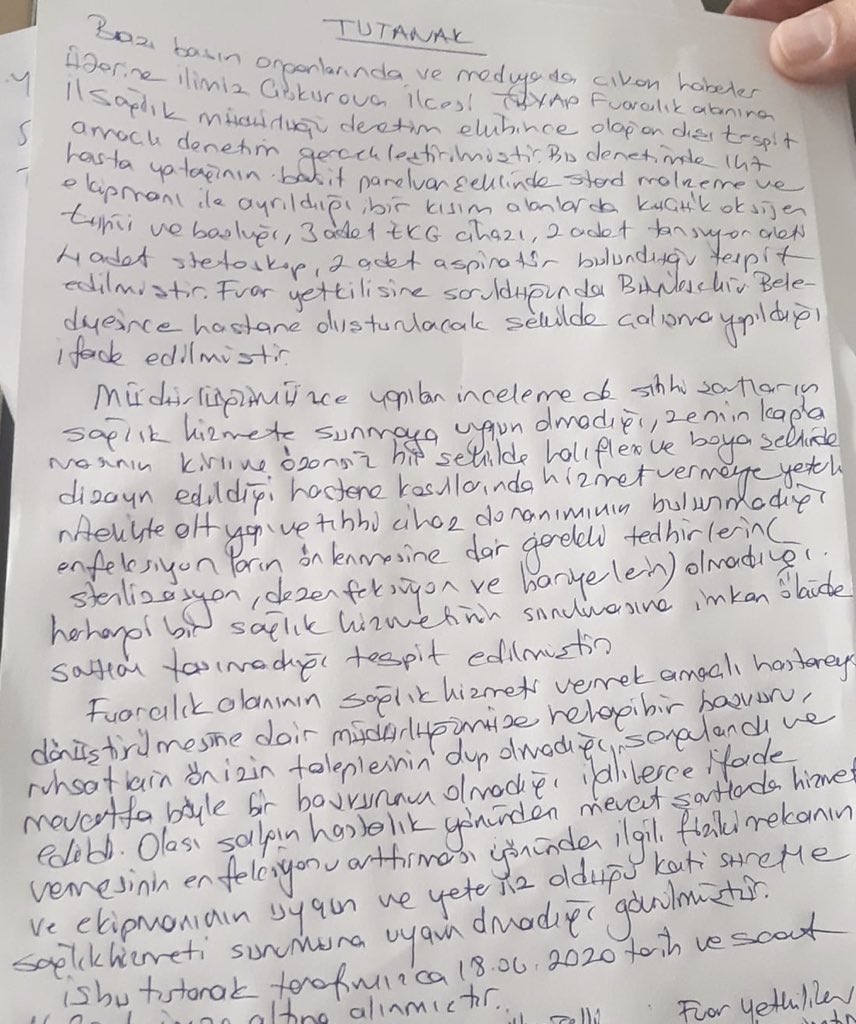 TUTANAK
Bazı basın organlarında ve medyada çıkan haberler
üzerine ilimiz Çukurova ilçesi TÜYAP Fuarcılık alanına
il sağlık müdürlüğü denetim ekibince olağan dışı tespit
amaçlı denetim gerçekleştirilmiştir. Bu denetimde 147
hasta yatağının basit paravan şeklinde stand malzeme ve
ekipmanı ile ayrıldığı, bir kısım alanlarda küçük oksijen
tüpü ve başlığı, 3 adet EKG cihazı, 2 adet tansiyon aleti
4 adet stetoskop, 2 adet aspiratör bulunduğu tespit
edilmiştir. Fuar yetkilisine sorulduğunda Büyükşehir Bele-
diyesince hastane oluşturulacak şekilde çalışma yapıldığı
ifade edilmiştir.
Müdürlüğümüzce yapılan incelemede sıhhi şartların
sağlık hizmete sunmaya uygun olmadığı, zemin kapla
masının kirli ve özensiz bir şekilde halıflex ve boya şeklinde
dizayn edildiği hastane koşullarında hizmet vermeye yeterli
nitelikte alt yapı ve tıbbi cihaz donanımının bulunmadığı
enfeksiyonların önlenmesine dair gerekli tedbirlerin(
sterilizasyon, dezenfeksiyon ve bariyerlerin) olmadığı,
herhangi bir sağlık hizmetinin sunulmasına imkan ölçüde
şartları taşımadığı tespit edilmiştir
Fuarcılık alanının sağlık hizmeti vermek amaçlı hastaneye
dönüştürülmesine dair müdürlüğümüze herhangi bir başvuru,
ruhsat için ön izin taleplerinin olup olmadığı sorgulandı ve
mevcutta böyle bir başvurunun olmadığı ilgililerce ifade
edildi. Olası salgın hastalık yönünden mevcut şartlarda hizmet
vermesinin enfeksiyonu arttırması yönünden ilgili fiziki mekanın
ve ekipmanının uygun ve yetersiz olduğu kati suretle
sağlık hizmeti sunumuna uygun olmadığı görülmüştür.
işbu tutanak tarafımızca 18.06.2020 tarih ve saat
altına alınmıştır.
Fuar yetkilileri